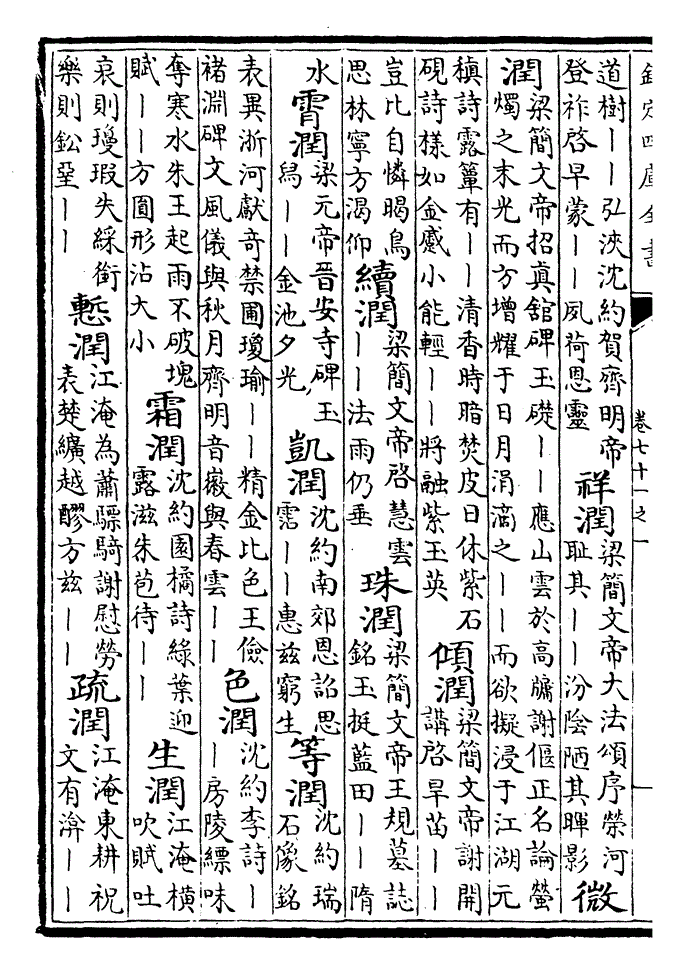 欽定四庫全書
卷七十一之一
道樹——弘浹沈約賀齊明帝
登祚啓早蒙——夙荷恩靈
祥潤
梁簡文帝大法頌序榮河
恥其——汾陰陋其暉影
微
潤
梁簡文帝招真舘碑玉礎——應山雲於高牖謝偃正名論螢
燭之末光而方增耀于日月涓滴之——而欲擬浸于江湖元
稹詩露簟有——清香時暗焚皮日休紫石
硯詩樣如金蹙小能輕——將融紫玉英
傾潤
梁簡文帝謝開
講啓旱苗——
豈比自憐暍鳥
思林寧方渴仰
續潤
梁簡文帝啓慧雲
——法雨仍垂
珠潤
梁簡文帝王規墓誌
銘玉挺藍田——隋
水
霄潤
梁元帝晉安寺碑玉
舄——金池夕光
凱潤
沈約南郊恩詔思
霑——惠兹窮生
等潤
沈約瑞
石像銘
表異浙河獻奇禁圃瓊瑜——精金比色王儉
褚淵碑文風儀與秋月齊明音徽與春雲——
色潤
沈約李詩—
—房陵縹味
奪寒水朱王起雨不破塊
賦——方圓形沾大小
霜潤
沈約園橘詩綠葉迎
露滋朱苞待——
生潤
江淹橫
吹賦吐
哀則瓊瑕失綵銜
樂則鈆堊——
慙潤
江淹為蕭驃騎謝慰勞
表楚纊越醪方兹——
疏潤
江淹東耕祝
文有渰——